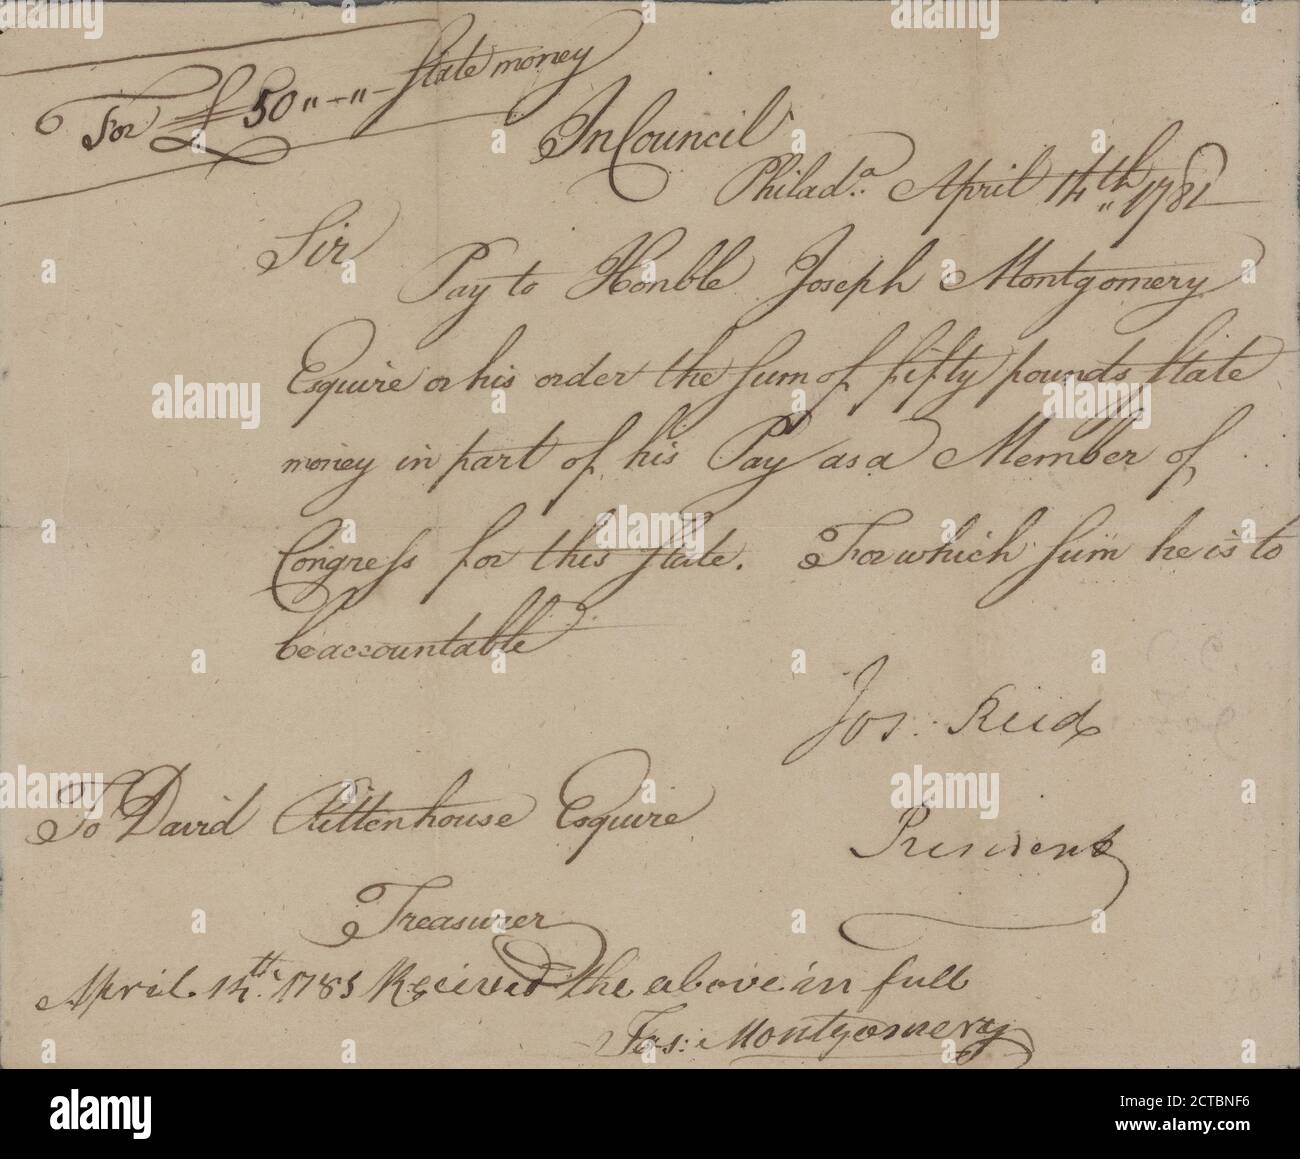 For £50 "-"- State money
In Council
Philada. April 14th 1781
Sir
Pay to Honble Joseph Montgomery
Esquire or his order the Sum of fifty pounds State
money in part of his Pay as a Member of
Congress for this State. For which Sum he is to
be accountable
Jos: Reed
President
To David Rittenhouse Esquire
Treasurer
April 14th 1781 Received the above in full
Jos: Montgomery
alamy
Image ID: 2CTBNF6
www.alamy.com